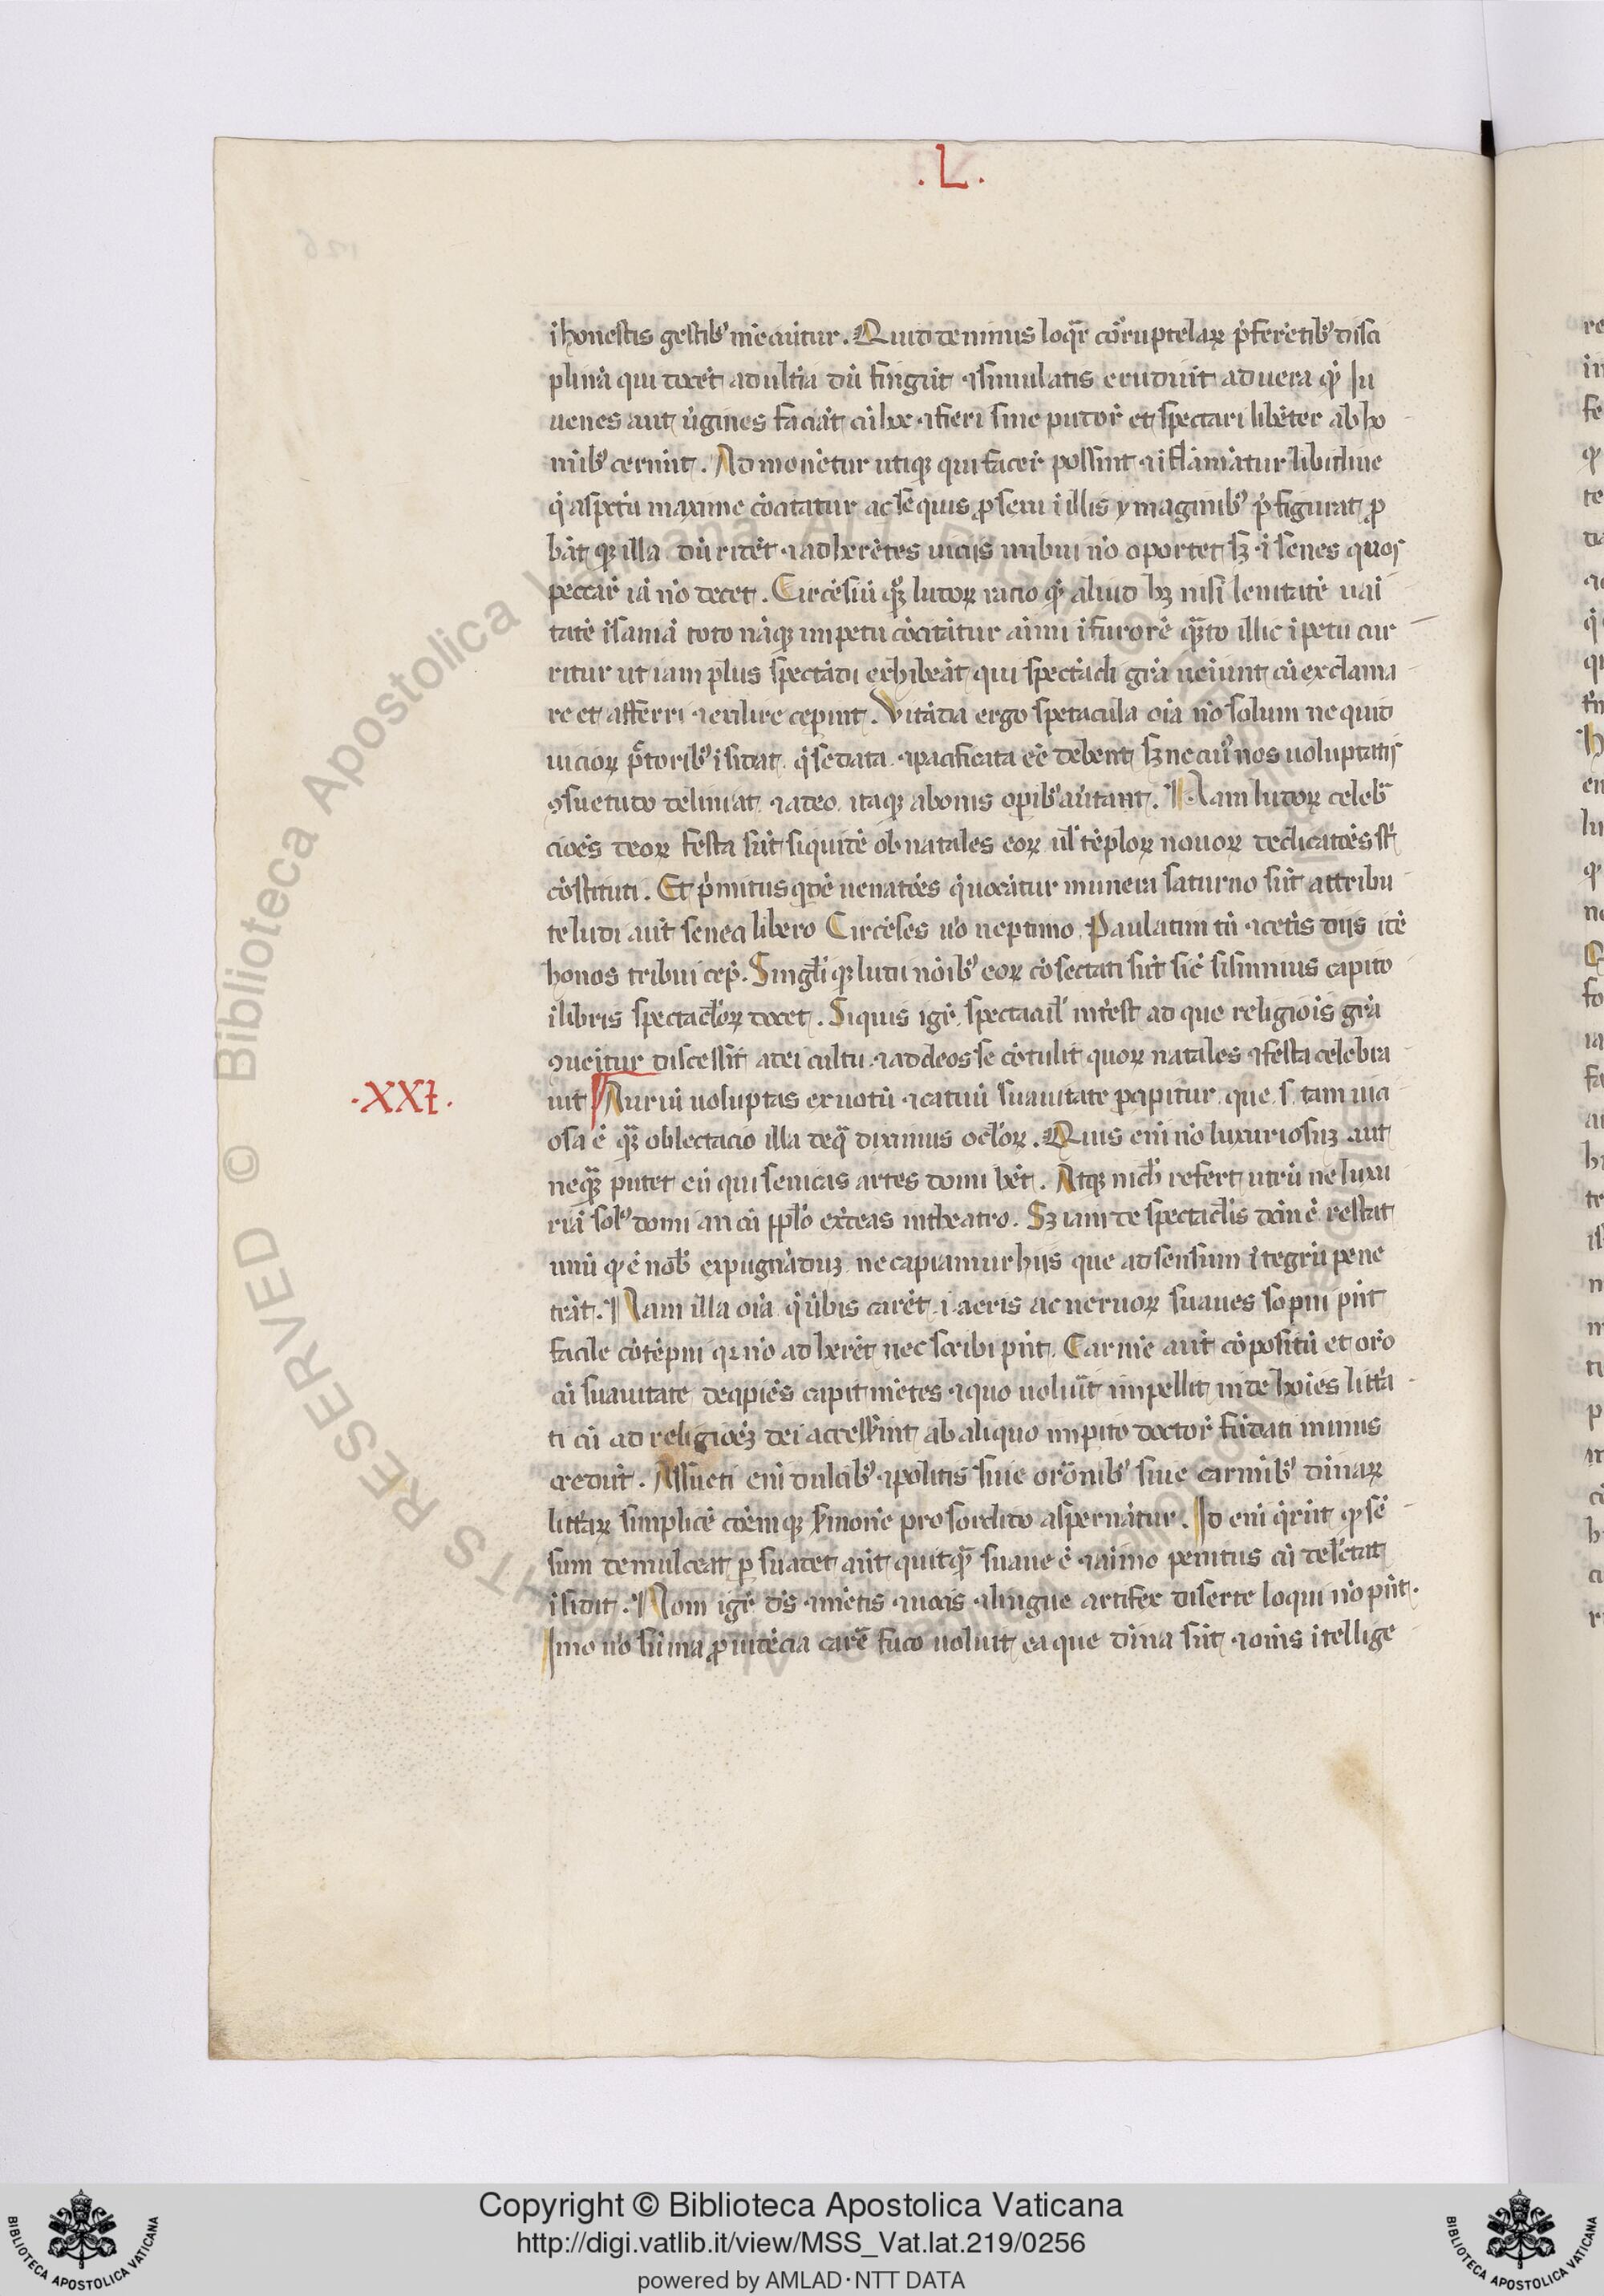 .L.
ihonestis gestib9 mẽciũtur. Quid de mimis loqr̃ corruptelaꝝ p̃ferẽtib9 disci
plinã qui docẽt adultia dũ fingũt ⁊ simulatis erudiũt ad uera qͥ Iu
uenes aut ugines faciãt cũ hec ⁊ fieri sine pudor̃ et spectari libẽter ab ho
mĩb9 cernũt. Admonẽtur utiqꝫ qui facer̃ possint ⁊ iflãmãtur libidine
q̃ aspetu maxime cõcitatur ac se quis ꝓ sexu i illis ymaginib9 p̃figurat ꝓ
bãt qꝫ illa dũ ridẽt ⁊ adherẽtes uiciis cubui nõ oportet sꝫ ⁊ i senes quos
peccar̃ iã nõ decet. Circẽsiũ qꝫ ludoꝝ racio qͥ aliud hꝫ nisi leuitatẽ uai
tatẽ isaniã toto nãqꝫ impetu cõcitãtur aimi i furorẽ qͣto illic ipetu cur
ritur ut iam plus spectãdi exhibeãt qui spectãdi grã ueiunt cũ exclama
re et afferri ⁊ exilire cepint. Vitãda ergo spetacula oĩa nõ solum ne quid
uicioꝝ pctorib9 isidat q̃ sedata ⁊ pacificata eẽ debent sꝫ ne cui9 nos uoluptatis
ꝯsuetudo deliniat ⁊ adeo itaqꝫ a bonis opib9 auͥtant. Nam ludoꝝ celebͣ
cioẽs deoꝝ festa sũt siquidẽ ob natales eoꝝ ul tẽploꝝ nouoꝝ dedicatoẽs st̃
cõstituti. Et pͥmitus qͥdẽ uenatoẽs q̃ uocãtur munera saturno sũt attribu
te ludi aut̃ senea libero Circẽses uͦo neptuno. Paulatim tñ ⁊ cetͥs diis idẽ
honos tribui cep̃. Singĩi qꝫ ludi nõib9 eoꝝ cõsectati sũt sic sisinnius capito
i libris spectacloꝝ docet. Siquis igͥ spectaculͥ intest ad que religiois grã
ꝯueitur discessit a dei cultu ⁊ ad deos se cõtulit quoꝝ natales ⁊ festa celebra
.XXI.
uit Auriũ uoluptas ex uotũ ⁊ catuũ suauitate pcipitur que s. tam uici
osa ẽ qͣ oblectacio illa deqͣ diximus oclõꝝ. Quis eni nõ luxuriosũ aut
neqͣ putet eũ qui senicas artes domi hẽt. Atqꝫ nicħ refert utrũ ne luxu
riã sol9 domi an cũ pplõ exͥceas in theatro. Sꝫ iam de spectaclis dcm̃ ẽ restat
unũ qͥ ẽ nob expugnãdũ ne capiamur hiis que ad sensum itegrũ pene
trãt. Nam illa oĩa q̃ ũbis carẽt i. aeris ac neruoꝝ suaues sopni pñt
facile cõtẽpni qꝛ nõ adherẽt nec scribi pñt. Carmẽ aut̃ cõpositũ et orõ
cũ suauitate deqpiẽs capit mẽtes ⁊ quo uolũit impellit inde hoĩes littͣa
ti cũ ad religioẽꝫ dei accessͥint ab aliquo impito doctor̃ fũdati minus
credũt. Assueti eni dulcib9 ⁊ politis siue orõnib9 siue carmĩb9 dĩnaꝝ
littͣaꝝ simplicẽ cõẽmqꝫ ßmonẽ pro sordido aspernãtur. Id eni q̃rũt qͥ sẽ
sum demulceat ꝑsuadet aut̃ quitqͣ suaue ẽ ⁊ aimo penitus cũ delcãt
isidit. Nom igͥ ds ⁊ mẽtis ⁊ uocis ⁊ lingue artifex diserte loqui nõ pñt.
Imo uͦo sũma ꝓuidẽcia carẽ fuco uoluit ea que dĩna sũt ⁊ oms itellige
Copyright © Biblioteca Apostolica Vaticana
http://digi.vatlib.it/view/MSS_Vat.lat.219/0256
powered by AMLAD·NTT DATA